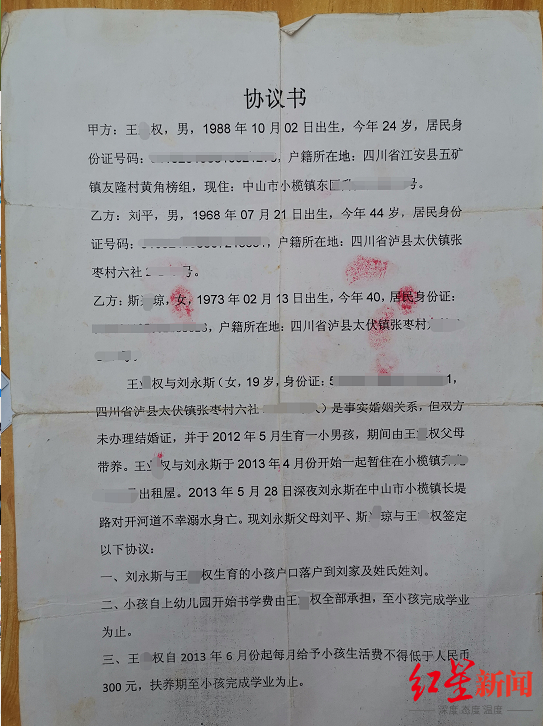 协议书
甲方：王 权，男，1988 年 10 月 02 日出生，今年 24 岁，居民身
份证号码： ，户籍所在地：四川省江安县五矿
镇友隆村黄角榜组，现住：中山市小榄镇东 号。
乙方：刘平，男，1968 年 07 月 21 日出生，今年 44 岁，居民身份
证号码： ，户籍所在地：四川省泸县太伏镇张
枣村六社 号。
乙方：斯 琼，女，1973 年 02 月 13 日出生，今年 40，居民身份证：
，户籍所在地：四川省泸县太伏镇张枣村
王 权与刘永斯（女，19 岁，身份证：5 1，
四川省泸县太伏镇张枣村六社 ）是事实婚姻关系，但双方
未办理结婚证，并于 2012 年 5 月生育一小男孩，期间由王 权父母
带养。王 权与刘永斯于 2013 年 4 月份开始一起暂住在小榄镇
出租屋。2013 年 5 月 28 日深夜刘永斯在中山市小榄镇长堤
路对开河道不幸溺水身亡。现刘永斯父母刘平、斯 琼与王 权签定
以下协议：
一、刘永斯与王 权生育的小孩户口落户到刘家及姓氏姓刘。
二、小孩自上幼儿园开始书学费由王 权全部承担，至小孩完成学业
为止。
三、王 权自 2013 年 6 月份起每月给予小孩生活费不得低于人民币
300 元，扶养期至小孩完成学业为止。
红星新闻
深度 态度 温度